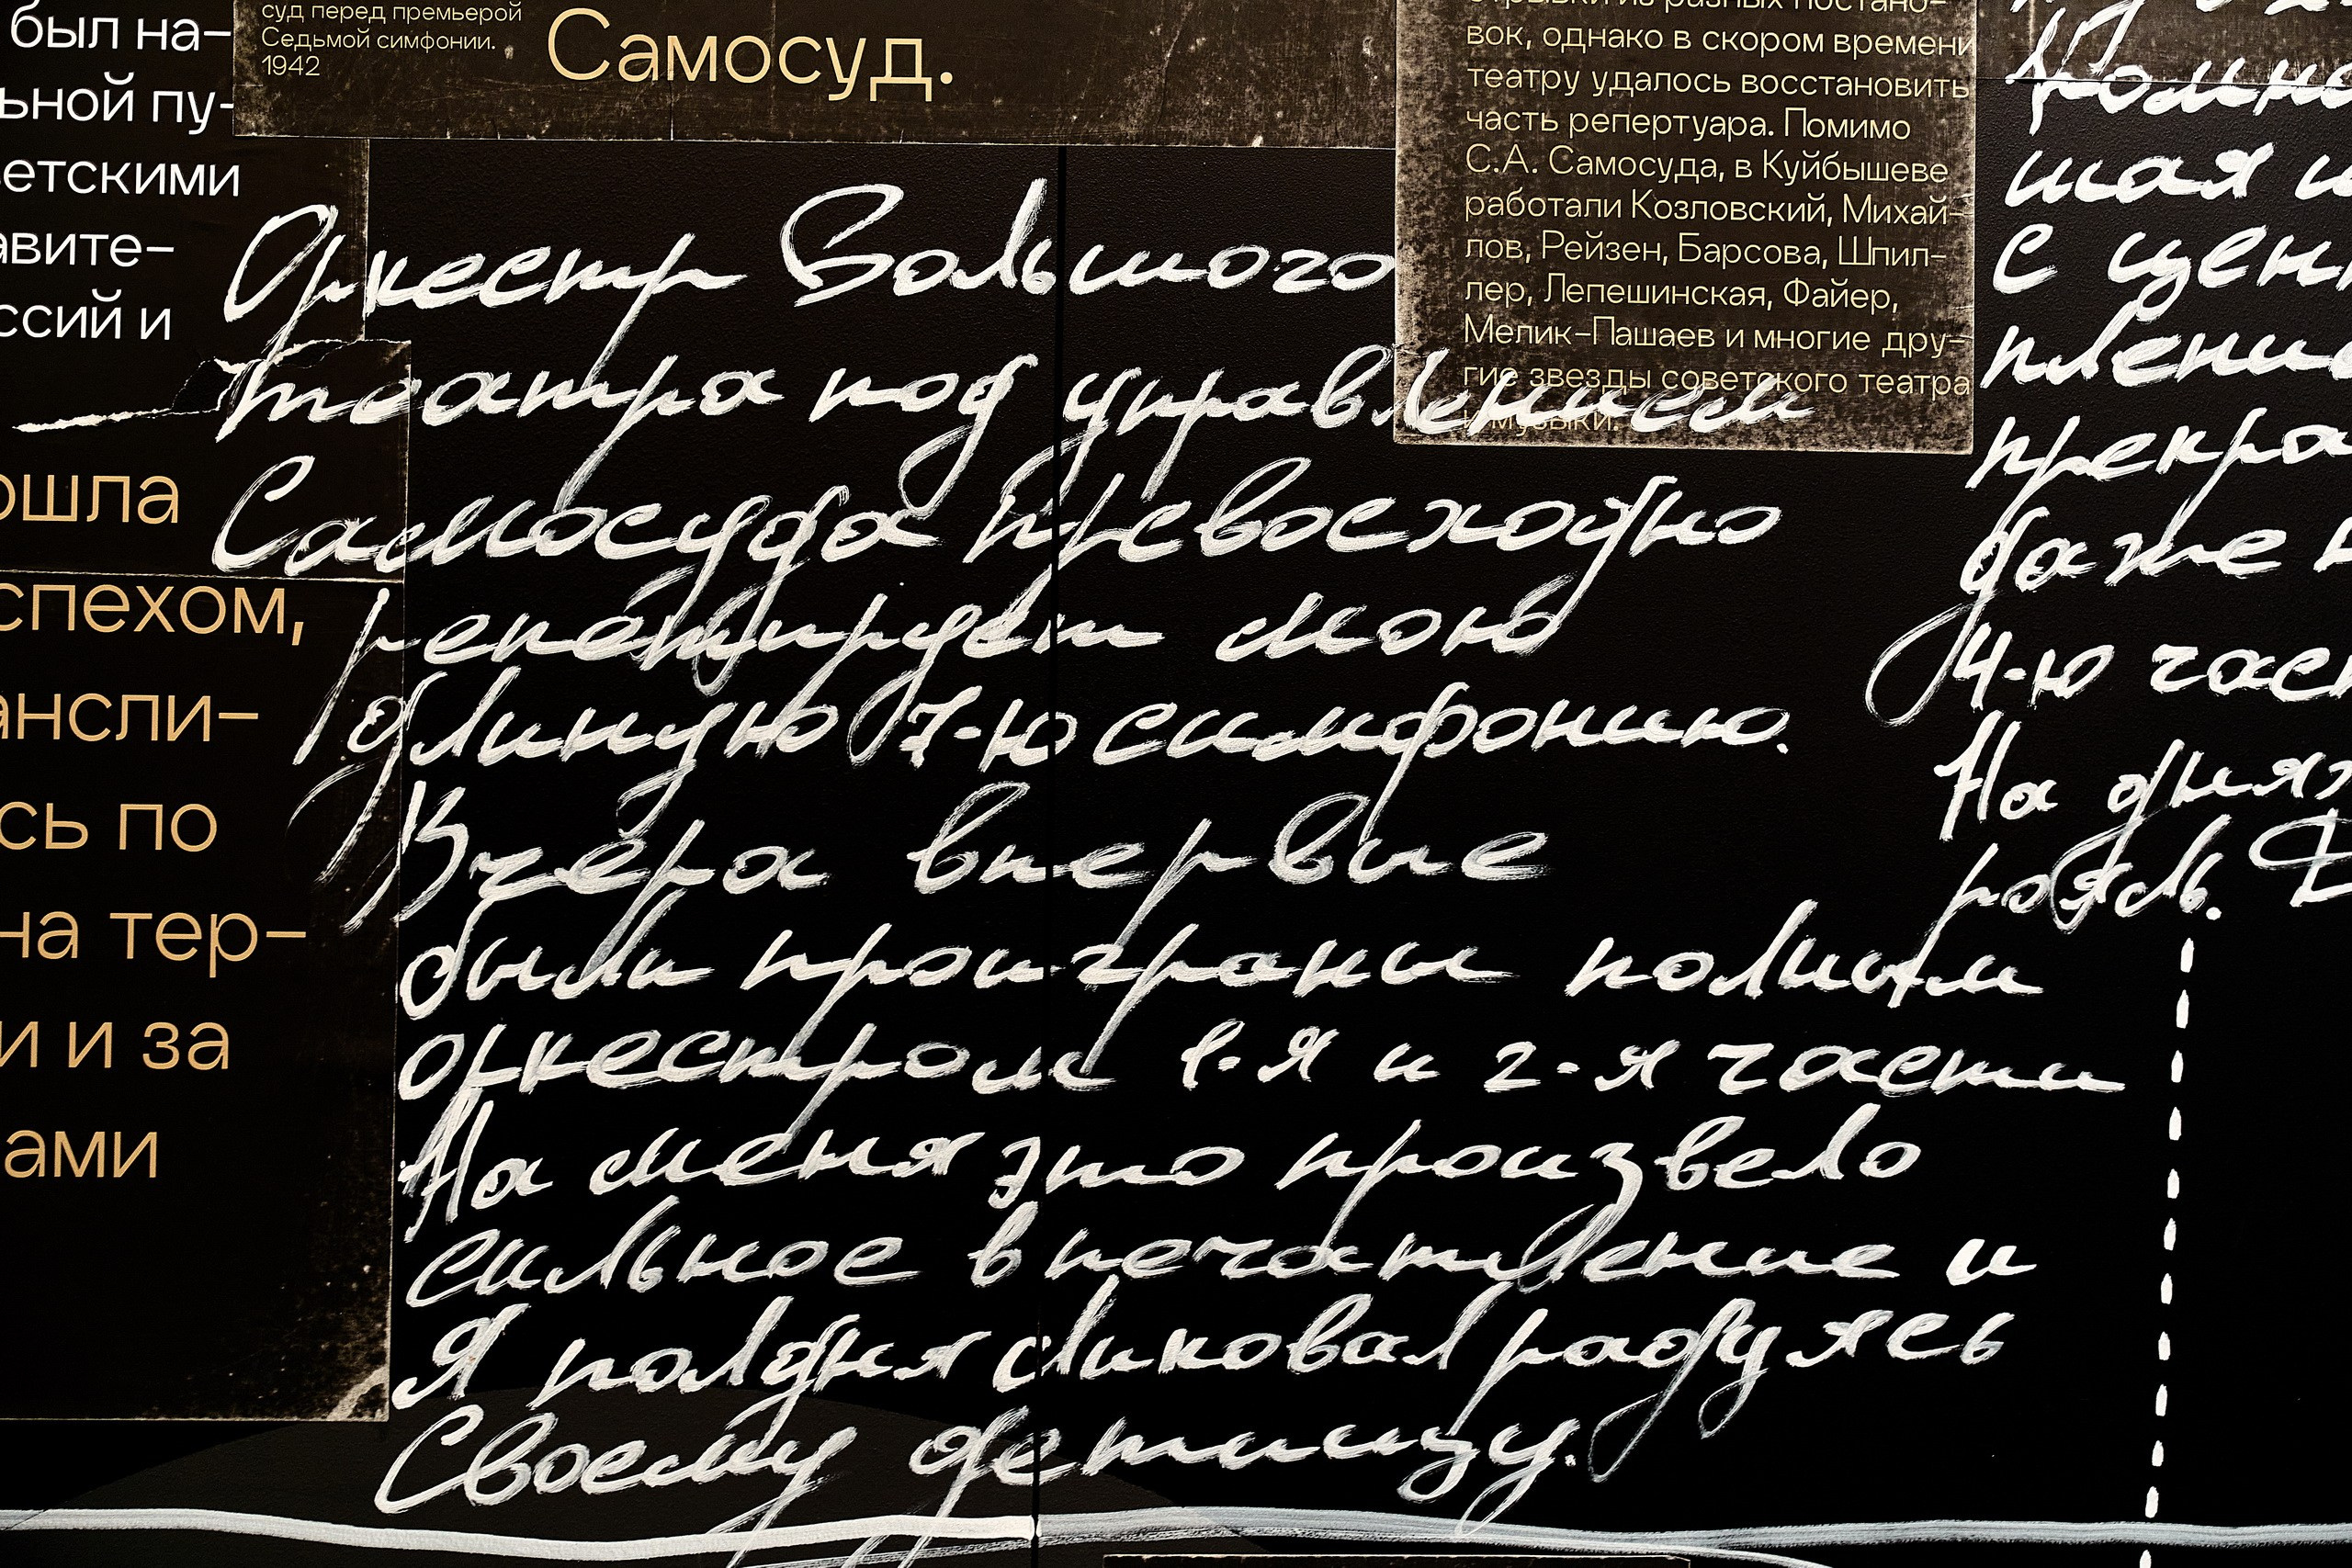 был на-
ьной пу-
ветскими
авите-
ссий и
ошла
спехом,
ансли-
сь по
на тер-
и и за
ами
суд перед премьерой
Седьмой симфонии.
1942
Самосуд.
отрывки из разных постано-
вок, однако в скором времени
театру удалось восстановить
часть репертуара. Помимо
С.А. Самосуда, в Куйбышеве
работали Козловский, Михай-
лов, Рейзен, Барсова, Шпил-
лер, Лепешинская, Файер,
Мелик-Пашаев и многие дру-
гие звезды советского театра
и музыки.
Оркестр Большого
театра под управлением
Самосуда превосходно
репетирует мою
длинную 7-ю симфонию.
Вчера впервые
были проиграны полным
оркестром 1-я и 2-я части
На меня это произвело
сильное впечатление и
я полдня ликовал радуясь
Своему детищу.
шая и
с цен
плени
прекра
даже
4-ю част
На днях
рояль.